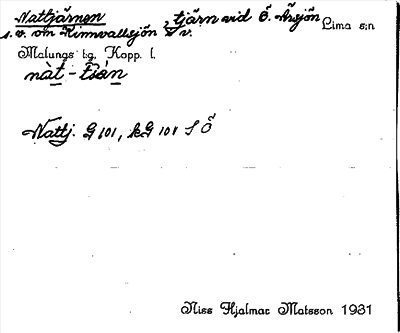 Nattjärnen, tjärn vid Ö. Ärsjön Lima s:n
s.ö. om Kinnvallsjön i v.
Malungs tg. Kopp. l.
nàt - tíǝ̀n
Nattj. G 101, kG 101 S Ö
Niss Hjalmar Matsson 1931